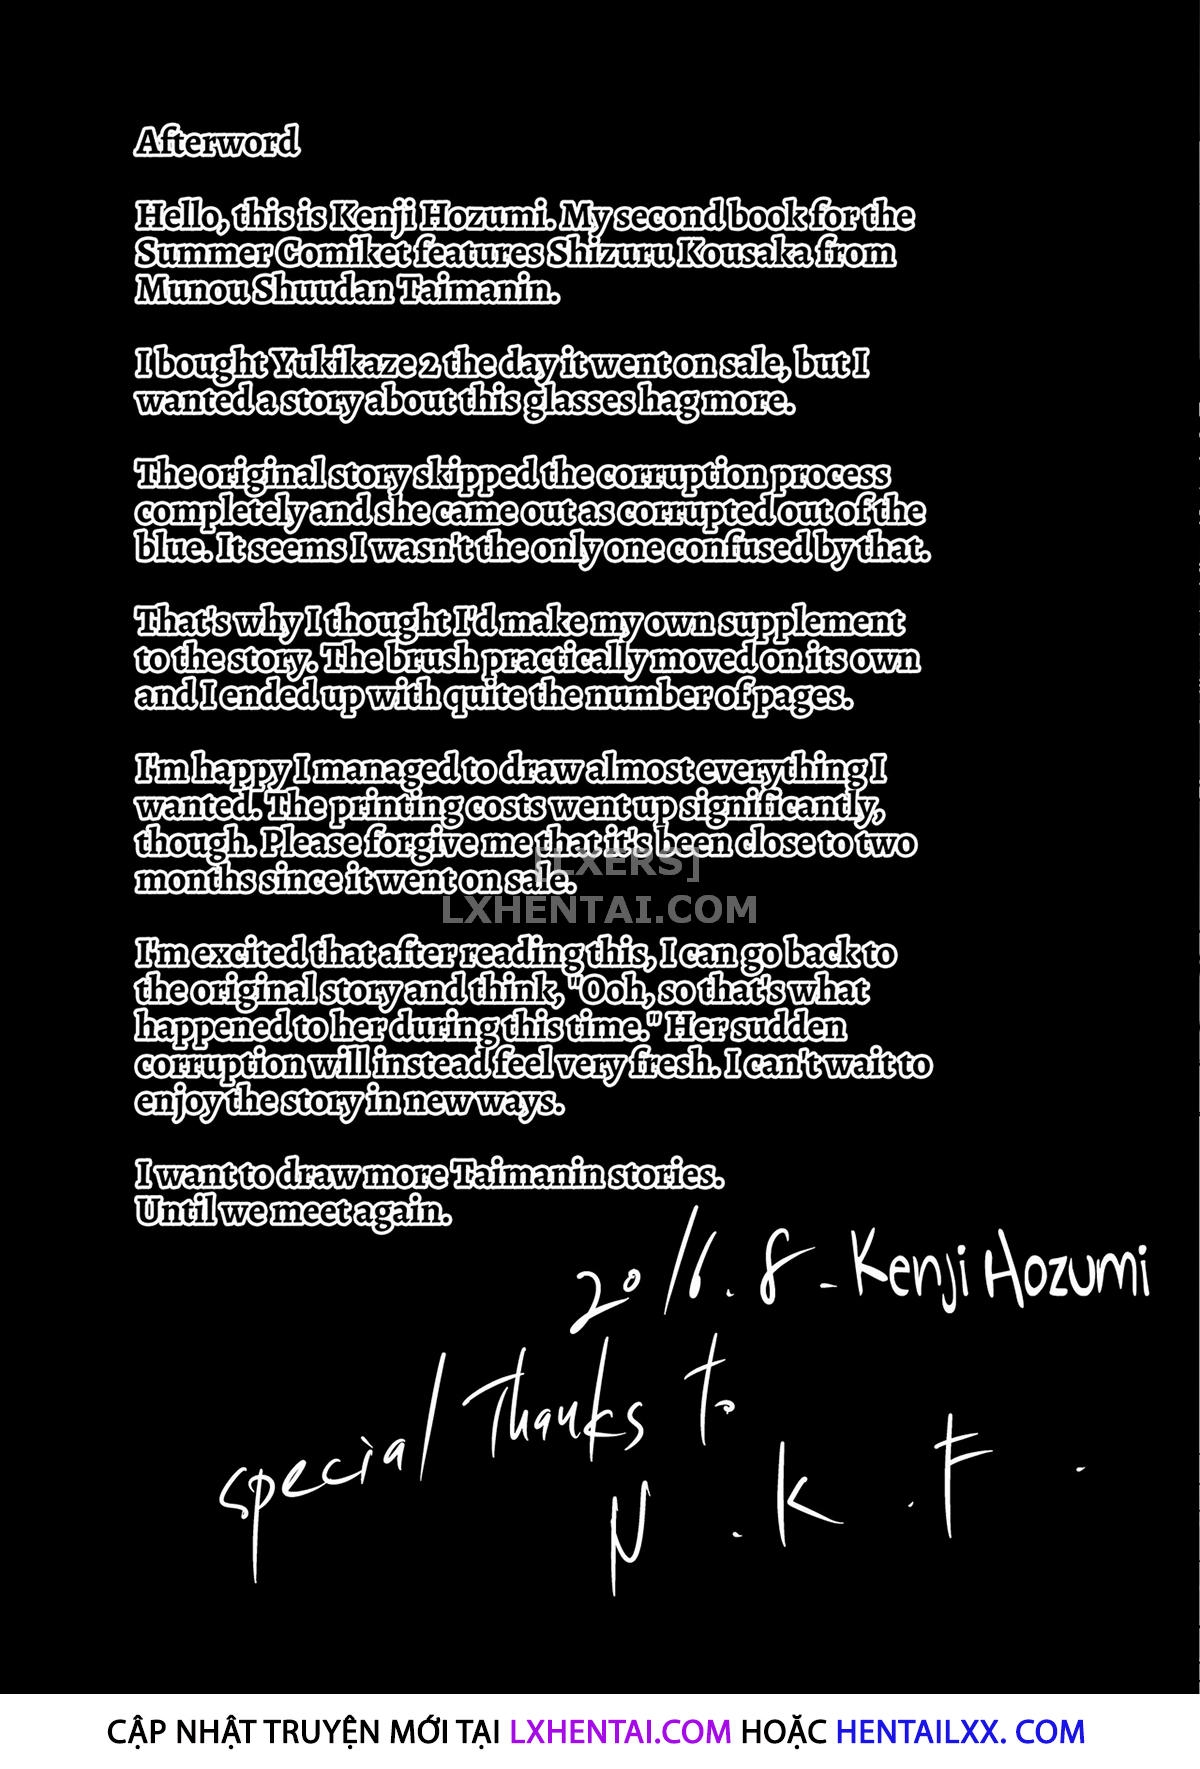 Afterword
Hello, this is Kenji Hozumi. My second book for the
Summer Comiket features Shizuru Kousaka from
Munou Shuudan Taimanin.
I bought Yukikaze 2 the day it went on sale, but I
wanted a story about this glasses hag more.
The original story skipped the corruption process
completely and she came out as corrupted out of the
blue. It seems I wasn't the only one confused by that.
That's why I thought I'd make my own supplement
to the story. The brush practically moved on its own
and I ended up with quite the number of pages.
I'm happy I managed to draw almost everything I
wanted. The printing costs went up significantly,
though. Please forgive me that it's been close to two
months since it went on sale.
[LXERS]
LXHENTAI.COM
I'm excited that after reading this, I can go back to
the original story and think, "Ooh, so that's what
happened to her during this time." Her sudden
corruption will instead feel very fresh. I can't wait to
enjoy the story in new ways.
I want to draw more Taimanin stories.
Until we meet again.
2016.8 - Kenji Hozumi
special Thanks to
N.K.F.
CẬP NHẬT TRUYỆN MỚI TẠI LXHENTAI.COM HOẶC HENTAILXX. COM